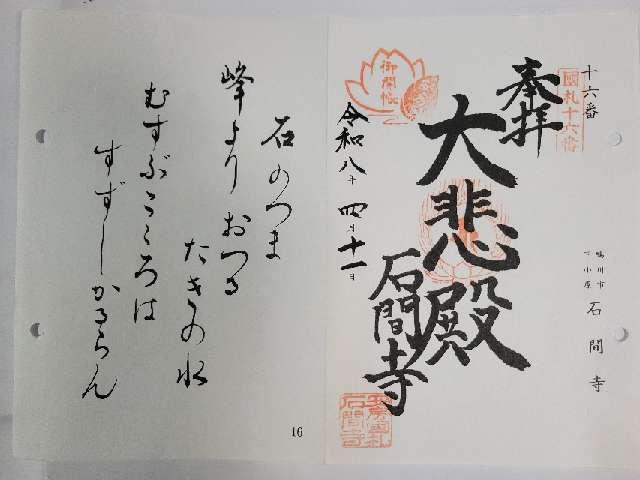 十六番
國札十六番
奉拝
大悲殿
石間寺
御開帳
令和八年四月十一日
鴨川市
下小原
石間寺
石のつま
峰より おつる
たきの水
むすぶこゝろは
すずしかるらん
16